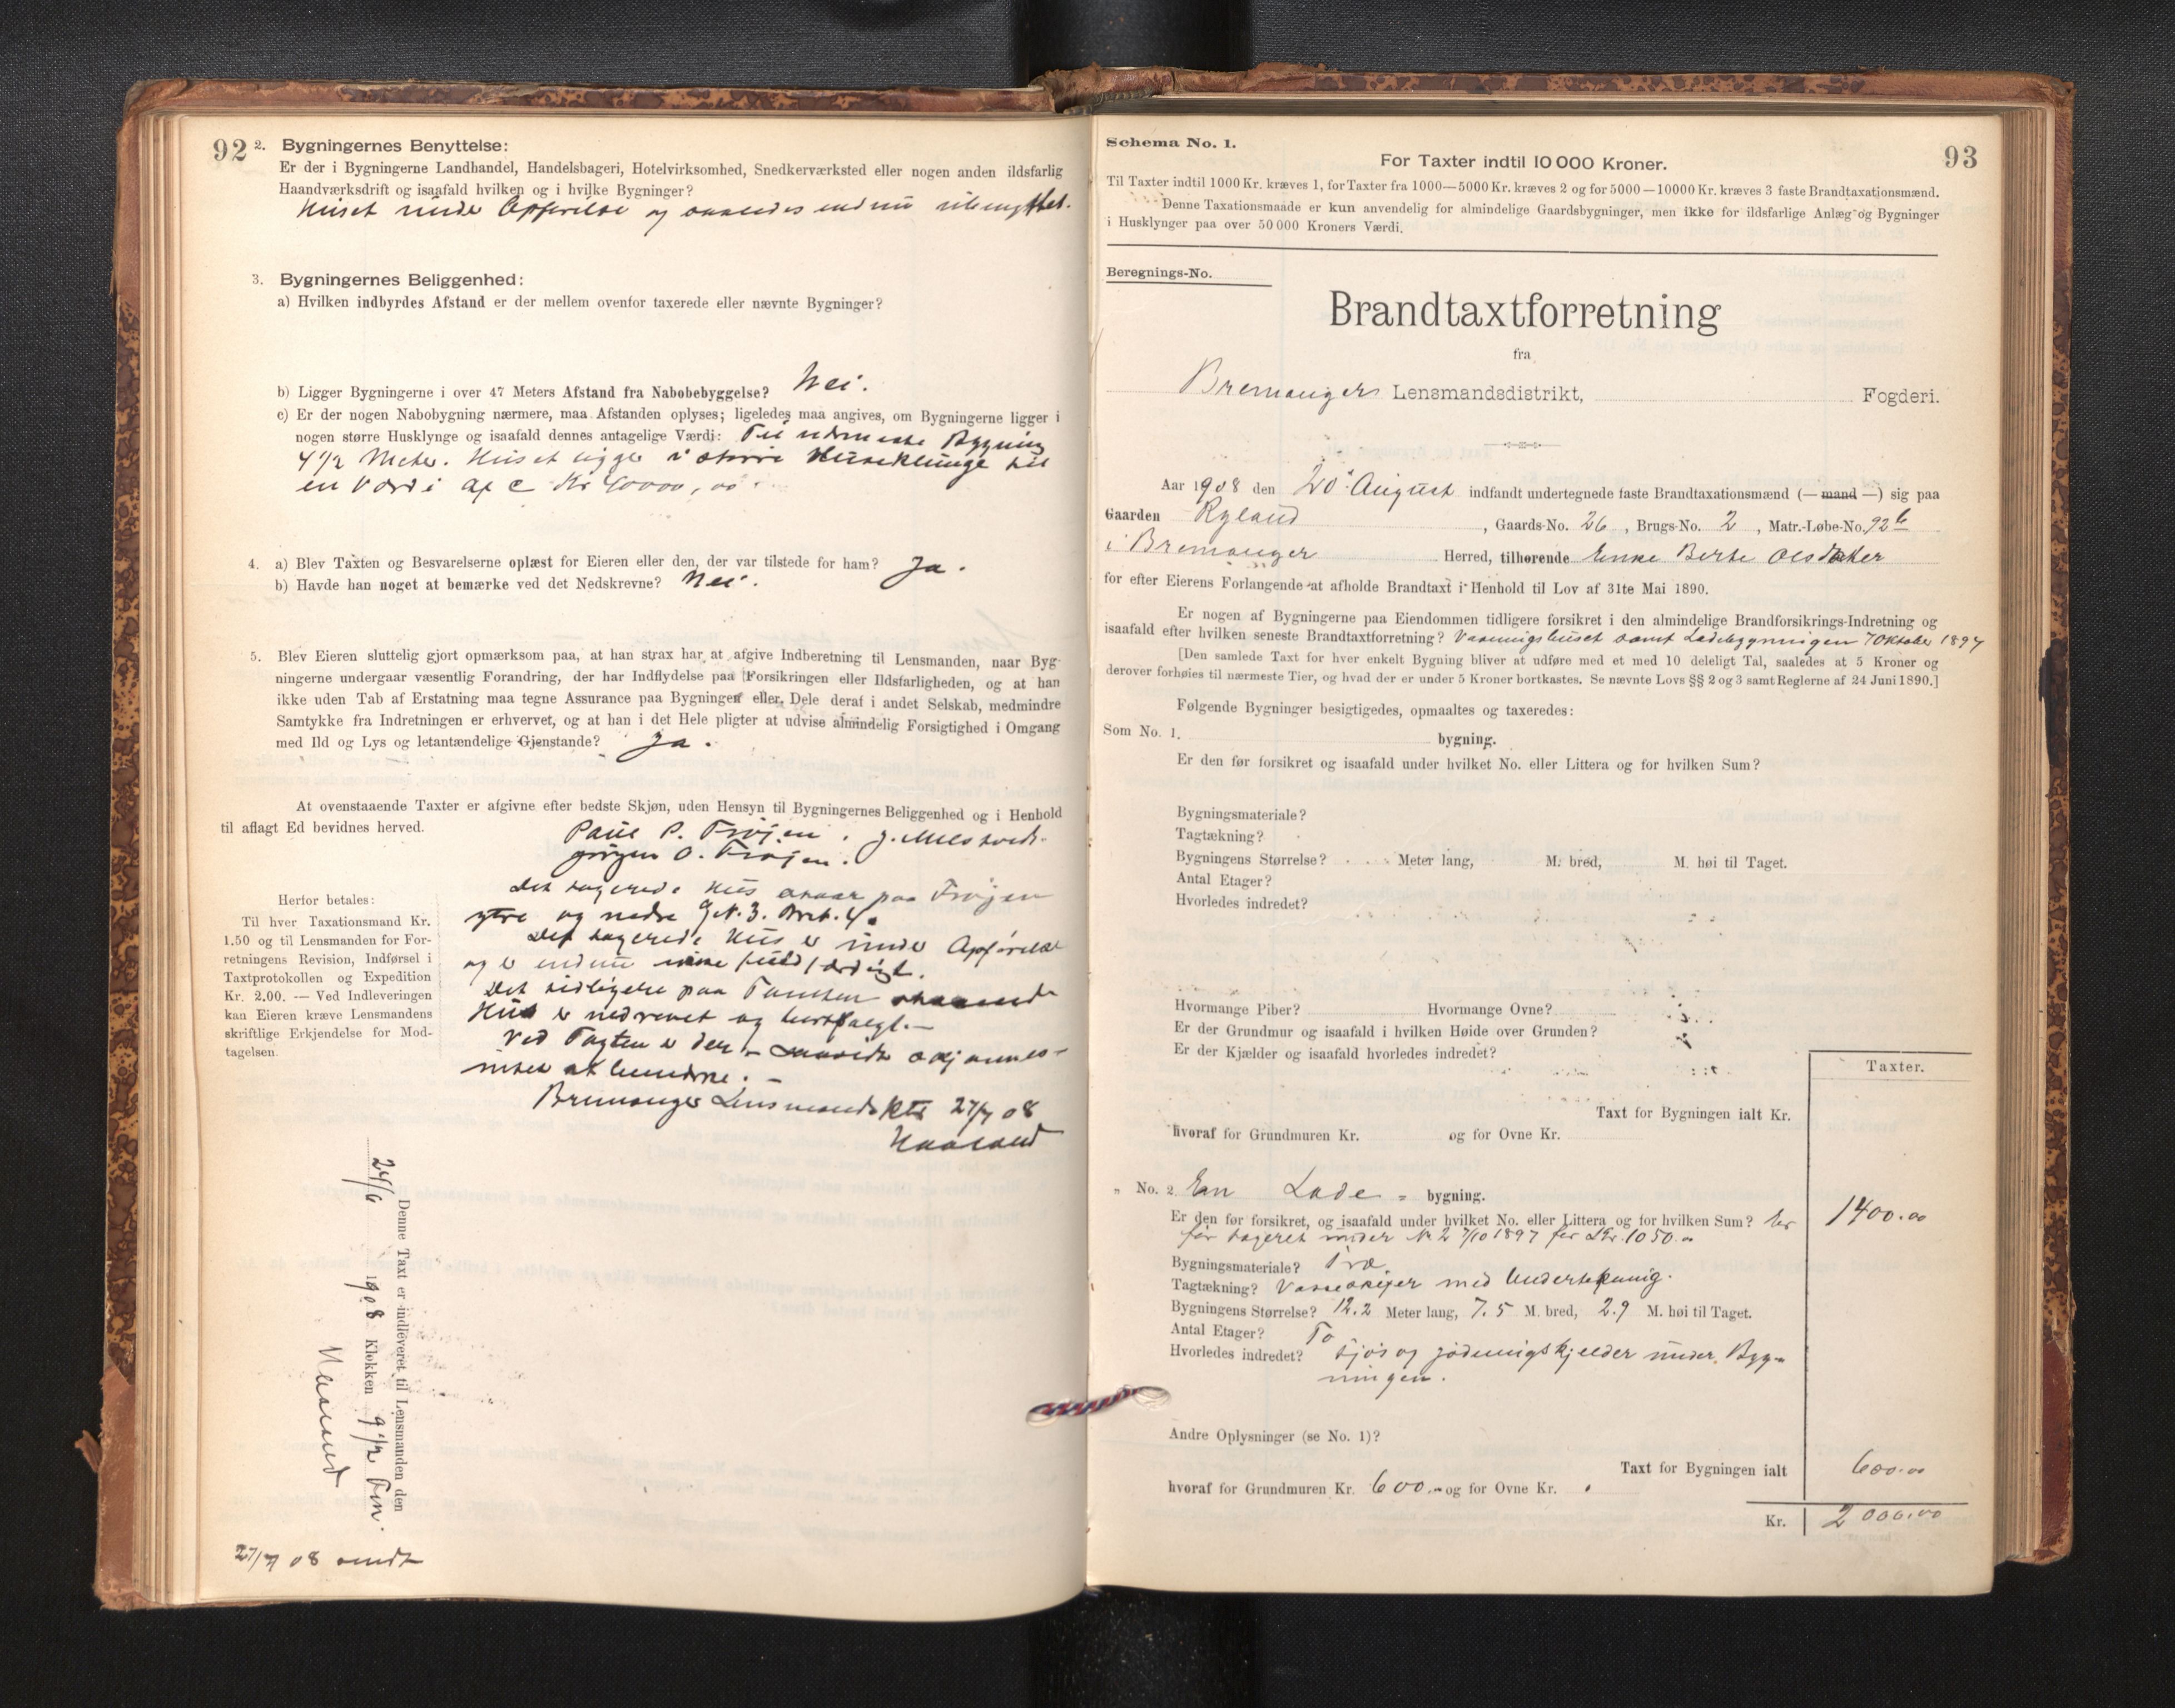 92
2. Bygningernes Benyttelse:
Er der i Bygningerne Landhandel, Handelsbageri, Hotelvirksomhed, Snedkerværksted eller nogen anden ildsfarlig
Haandværksdrift og isaafald hvilken og i hvilke Bygninger?
Huset under Opførelse og saaledes endnu ubenyttet.
3. Bygningernes Beliggenhed:
a) Hvilken indbyrdes Afstand er der mellem ovenfor taxerede eller nævnte Bygninger?
b) Ligger Bygningerne i over 47 Meters Afstand fra Nabobebyggelse? Nei.
c) Er der nogen Nabobygning nærmere, maa Afstanden oplyses; ligeledes maa angives, om Bygningerne ligger i
nogen større Husklynge og isaafald dennes antagelige Værdi: Til nærmeste Bygning
4 1/2 Meter. Huset ligger i større Husklynge til
en Værdi af c Kr 40000,00.
4. a) Blev Taxten og Besvarelserne oplæst for Eieren eller den, der var tilstede for ham? Ja.
b) Havde han noget at bemærke ved det Nedskrevne? Nei.
5. Blev Eieren sluttelig gjort opmærksom paa, at han strax har at afgive Indberetning til Lensmanden, naar Byg-
ningerne undergaar væsentlig Forandring, der har Indflydelse paa Forsikringen eller Ildsfarligheden, og at han
ikke uden Tab af Erstatning maa tegne Assurance paa Bygningen eller Dele deraf i andet Selskab, medmindre
Samtykke fra Indretningen er erhvervet, og at han i det Hele pligter at udvise almindelig Forsigtighed i Omgang
med Ild og Lys og letantændelige Gjenstande? Ja.
At ovenstaaende Taxter er afgivne efter bedste Skjøn, uden Hensyn til Bygningernes Beliggenhed og i Henhold
til aflagt Ed bevidnes herved.
Paul P. Frøjen. J.
Jørgen O. Frøjen.
Herfor betales:
Til hver Taxationsmand Kr.
1.50 og til Lensmanden for For-
retningens Revision, Indførsel i
Taxtprotokollen og Expedition
Kr. 2.00. — Ved Indleveringen
kan Eieren kræve Lensmandens
skriftlige Erkjendelse for Mod-
tagelsen.
Det taxerede Hus staar paa Frøjen
ytre og nedre G.N. 3. Br.N. 4.
Det taxerede Hus er under Opførelse
og er endnu ikke fuldfærdigt.
Det tidligere paa Tomten staaende
Hus er nedrevet og bortsolgt.—
Ved Taxten er der - saavidt skjønnes -
intet at bemærke. -
Bremanger Lensmandsktr 27/7 08
Haaland
Denne Taxt er indleveret til Lensmanden den
24/6 1908 Klokken 9 1/2 Fm.
Haaland
27/7 08 sendt
Schema No. 1.
93
For Taxter indtil 10 000 Kroner.
Til Taxter indtil 1000 Kr. kræves 1, for Taxter fra 1000—5000 Kr. kræves 2 og for 5000—10000 Kr. kræves 3 faste Brandtaxationsmænd.
Denne Taxationsmaade er kun anvendelig for almindelige Gaardsbygninger, men ikke for ildsfarlige Anlæg og Bygninger
i Husklynger paa over 50 000 Kroners Værdi.
Beregnings-No.
Brandtaxtforretning
fra
Bremangers Lensmandsdistrikt, Fogderi.
Aar 1908 den 20 August indfandt undertegnede faste Brandtaxationsmænd (— mand —) sig paa
Gaarden Ryland, Gaards-No. 26, Brugs-No. 2, Matr.-Løbe-No. 92b
i Bremanger Herred, tilhørende Enke Berte Olsdatter
for efter Eierens Forlangende at afholde Brandtaxt i Henhold til Lov af 31te Mai 1890.
Er nogen af Bygningerne paa Eiendommen tidligere forsikret i den almindelige Brandforsikrings-Indretning og
isaafald efter hvilken seneste Brandtaxtforretning? Vaaningshuset samt Ladebygningen 7 Oktober 1897
[Den samlede Taxt for hver enkelt Bygning bliver at udføre med et med 10 deleligt Tal, saaledes at 5 Kroner og
derover forhøies til nærmeste Tier, og hvad der er under 5 Kroner bortkastes. Se nævnte Lovs §§ 2 og 3 samt Reglerne af 24 Juni 1890.]
Følgende Bygninger besigtigedes, opmaaltes og taxeredes:
Som No. 1. bygning.
Er den før forsikret og isaafald under hvilket No. eller Littera og for hvilken Sum?
Bygningsmateriale?
Tagtækning?
Bygningens Størrelse? Meter lang, M. bred, M. høi til Taget.
Antal Etager?
Hvorledes indredet?
Hvormange Piber? Hvormange Ovne?
Er der Grundmur og isaafald i hvilken Høide over Grunden?
Er der Kjælder og isaafald hvorledes indredet?
Taxter.
Taxt for Bygningen ialt Kr.
hvoraf for Grundmuren Kr. og for Ovne Kr.
" No. 2 En Lade - bygning.
Er den før forsikret, og isaafald under hvilket No. eller Littera og for hvilken Sum? Er
før taxeret under No 2 7/10 1897 for Kr. 1050.00
1400.00
Bygningsmateriale? Træ
Tagtækning? med Undertækning.
Bygningens Størrelse? 12.2 Meter lang, 7.5 M. bred, 2.9 M. høi til Taget.
Antal Etager? To
Hvorledes indredet? Fjøs og gjødningskjelder under Byg-
ningen.
Andre Oplysninger (se No. 1)?
Taxt for Bygningen ialt 600.00
hvoraf for Grundmuren Kr. 600.00 og for Ovne Kr.
Kr. 2000.00